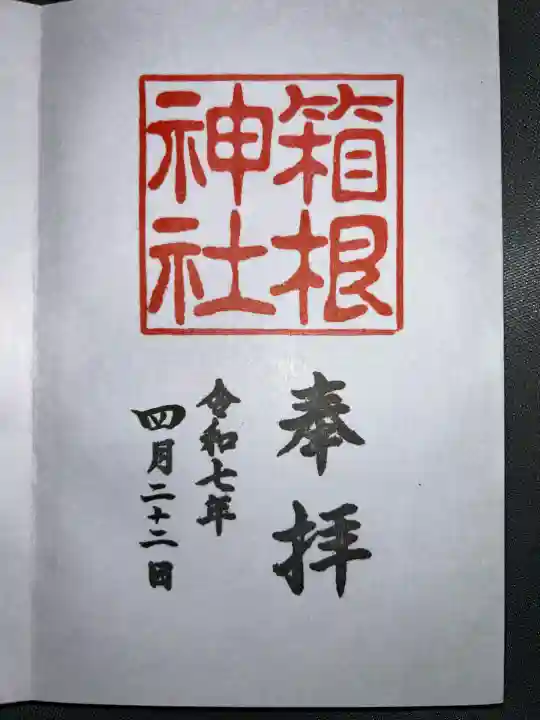 箱根
神社
奉拝
令和七年
四月二十二日